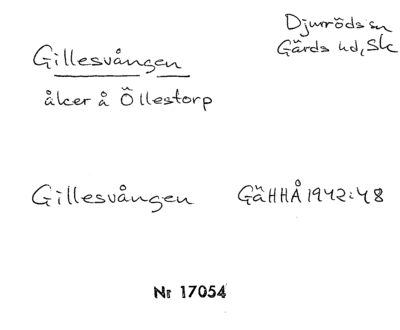 Djurröds sn
Gärds hd, Sk
Gillesvången
åker å Öllestorp
Gillesvången GäHHÅ 1942:48
Nr 17054